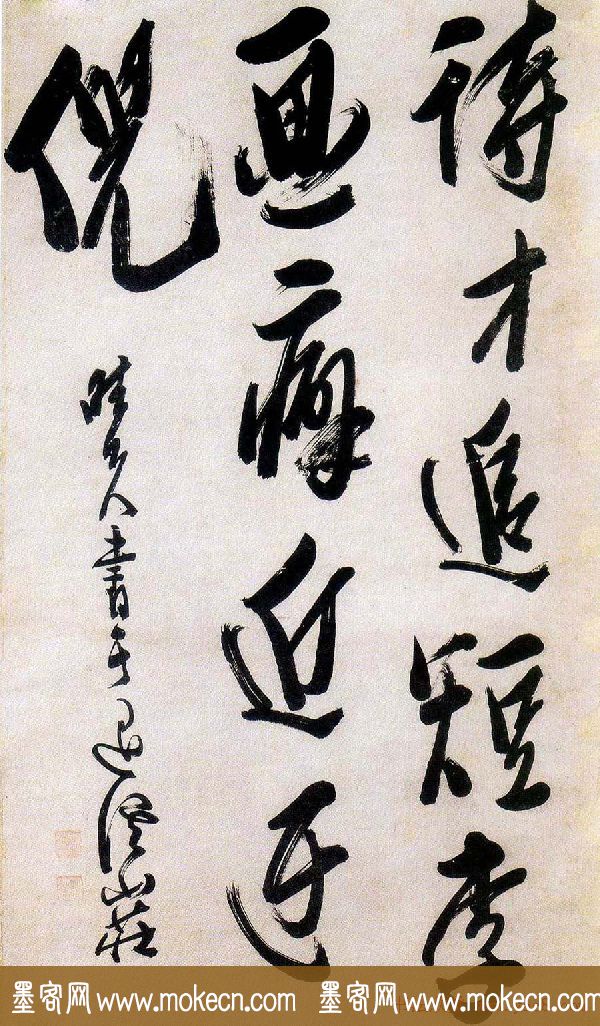 詩才追短李
画癖近迂
倪
老人書于山莊
墨客网 www.mokecn.com 墨客网 www.mokecn.com